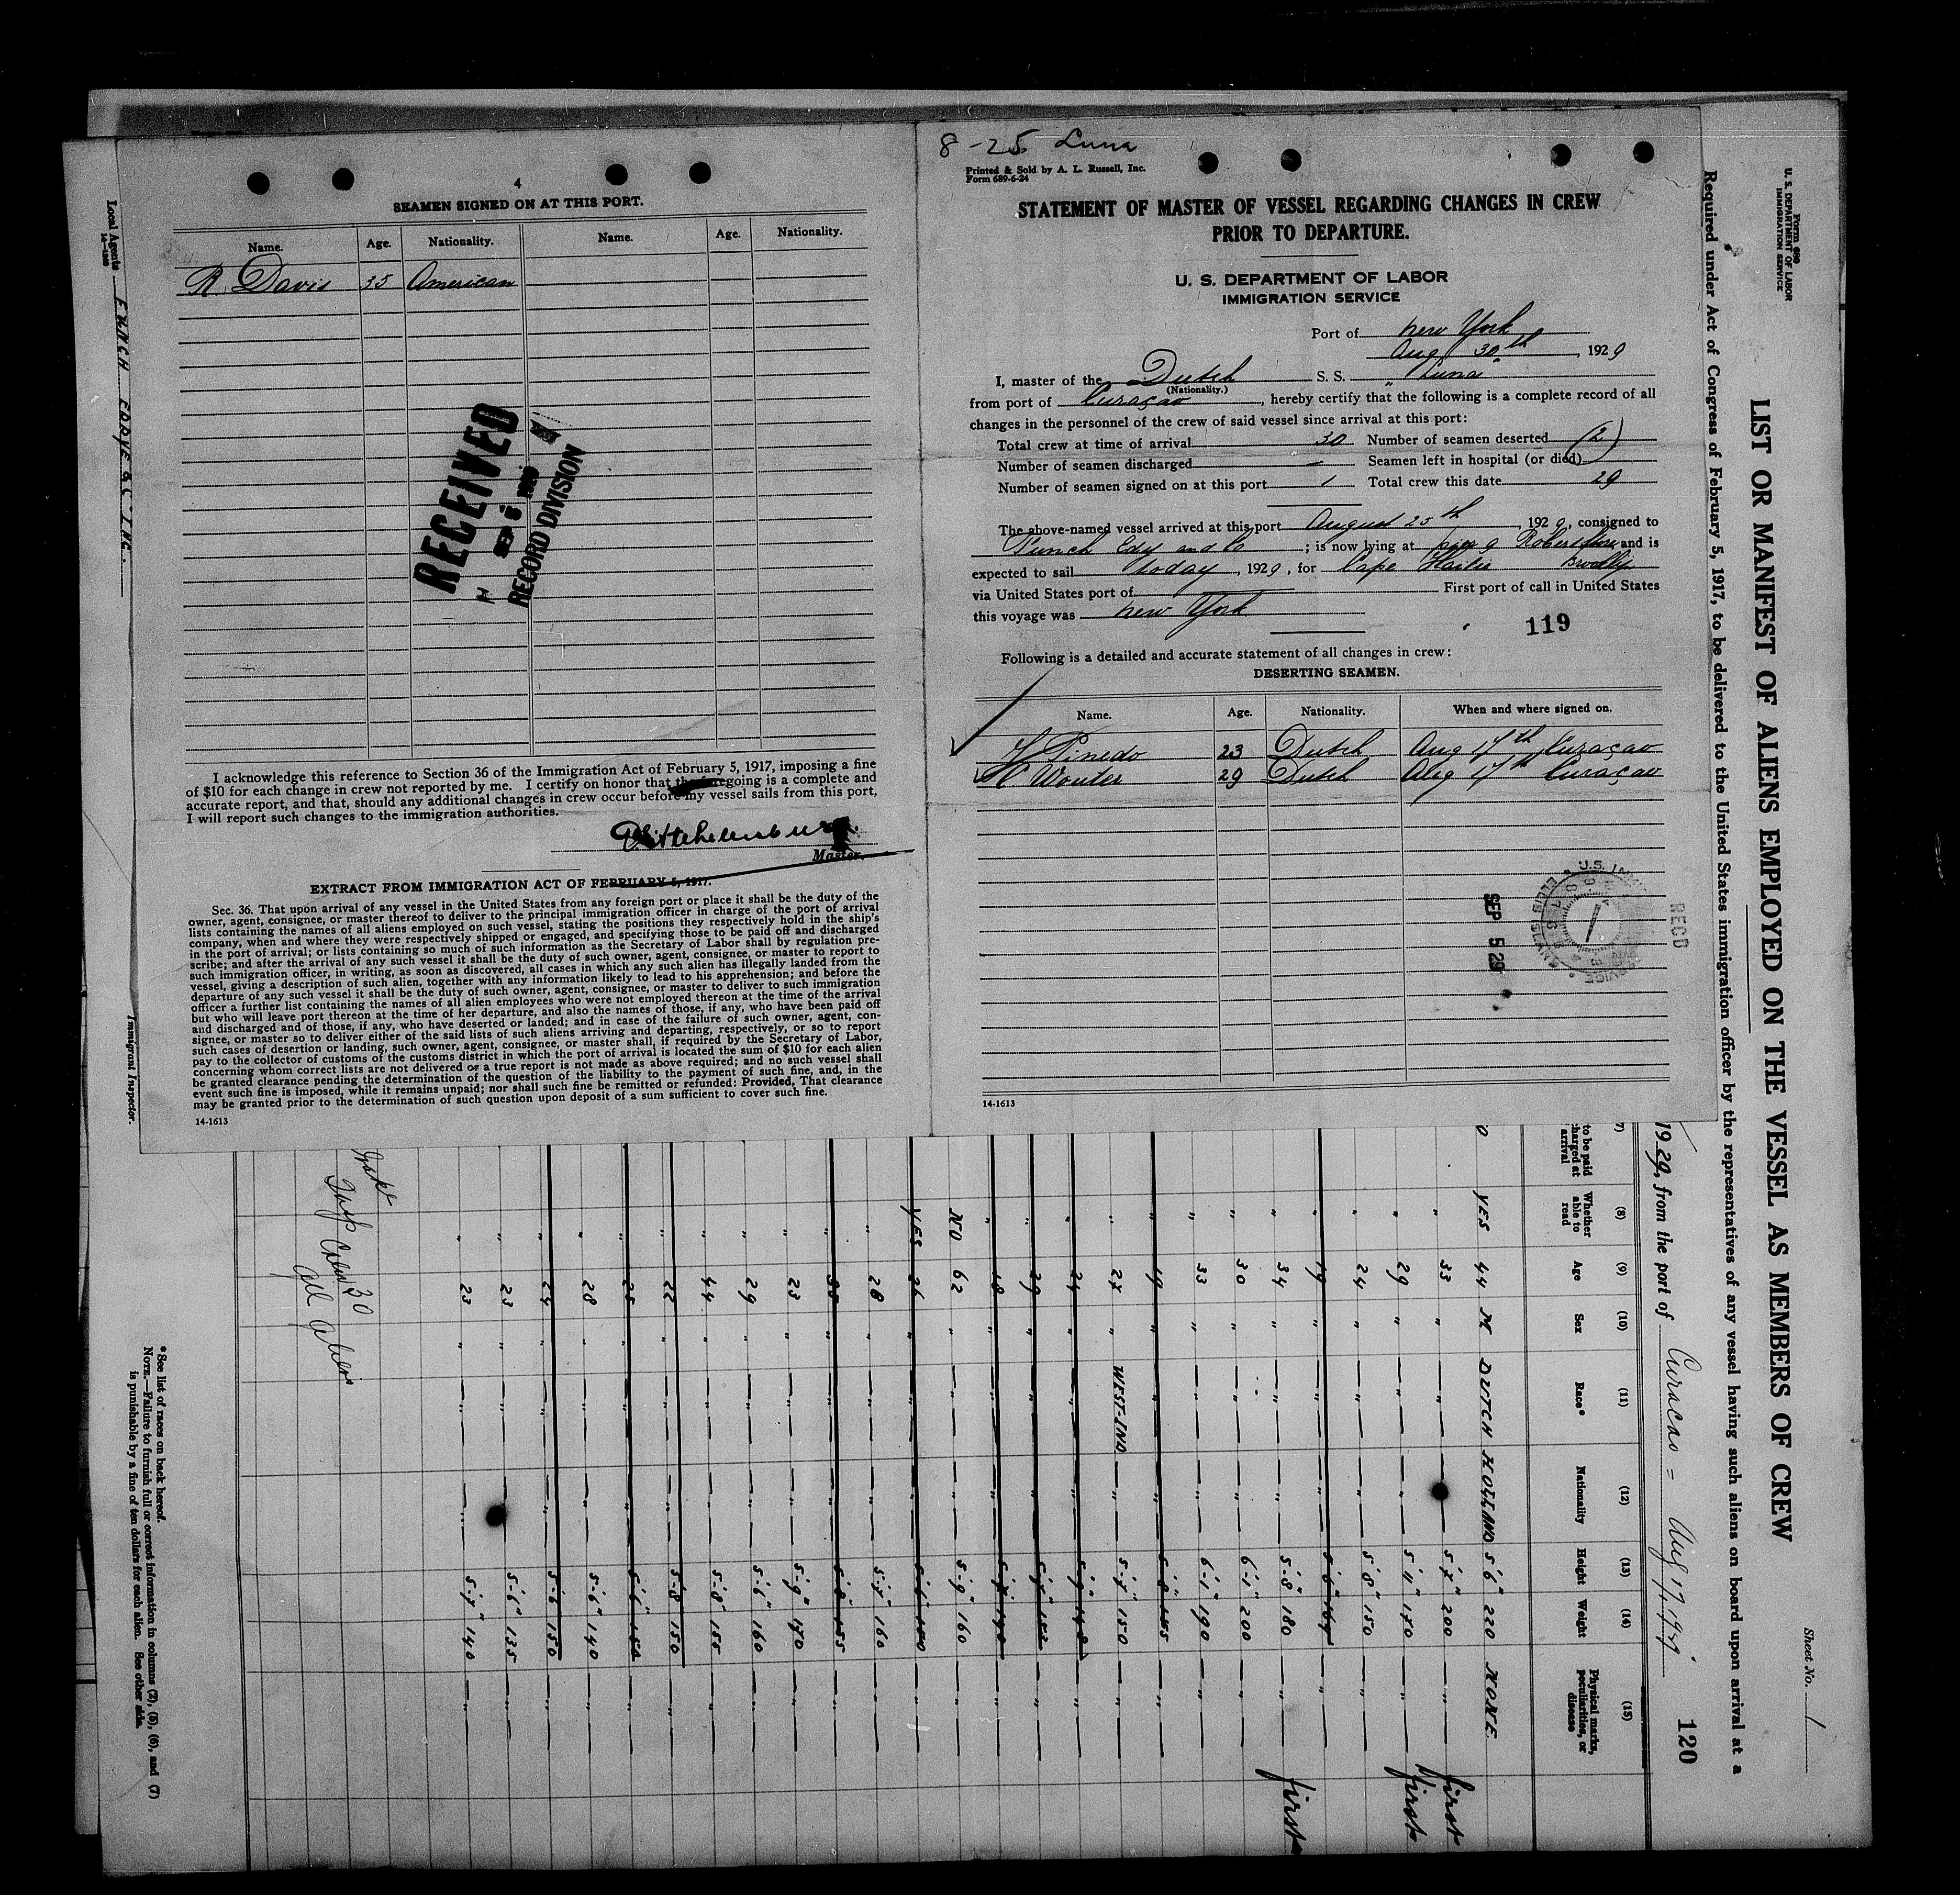 4
SEAMEN SIGNED ON AT THIS PORT.
Name. Age. Nationality. Name. Age. Nationality.
R. Davis 35 American
RECEIVED
SEP 6
RECORD DIVISION
H
I acknowledge this reference to Section 36 of the Immigration Act of February 5, 1917, imposing a fine
of $10 for each change in crew not reported by me. I certify on honor that the foregoing is a complete and
accurate report, and that, should any additional changes in crew occur before my vessel sails from this port,
I will report such changes to the immigration authorities.
Master.
EXTRACT FROM IMMIGRATION ACT OF FEBRUARY 5, 1917.
Sec. 36. That upon arrival of any vessel in the United States from any foreign port or place it shall be the duty of the
owner, agent, consignee, or master thereof to deliver to the principal immigration officer in charge of the port of arrival
lists containing the names of all aliens employed on such vessel, stating the positions they respectively hold in the ship's
company, when and where they were respectively shipped or engaged, and specifying those to be paid off and discharged
in the port of arrival; or lists containing so much of such information as the Secretary of Labor shall by regulation pre-
scribe; and after the arrival of any such vessel it shall be the duty of such owner, agent, consignee, or master to report to
such immigration officer, in writing, as soon as discovered, all cases in which any such alien has illegally landed from the
vessel, giving a description of such alien, together with any information likely to lead to his apprehension; and before the
departure of any such vessel it shall be the duty of such owner, agent, consignee, or master to deliver to such immigration
officer a further list containing the names of all alien employees who were not employed thereon at the time of the arrival
but who will leave port thereon at the time of her departure, and also the names of those, if any, who have been paid off
and discharged and of those, if any, who have deserted or landed; and in case of the failure of such owner, agent, con-
signee, or master so to deliver either of the said lists of such aliens arriving and departing, respectively, or so to report
such cases of desertion or landing, such owner, agent, consignee, or master shall, if required by the Secretary of Labor,
pay to the collector of customs of the customs district in which the port of arrival is located the sum of $10 for each alien
concerning whom correct lists are not delivered or a true report is not made as above required; and no such vessel shall
be granted clearance pending the determination of the question of the liability to the payment of such fine, and, in the
event such fine is imposed, while it remains unpaid; nor shall such fine be remitted or refunded: Provided, That clearance
may be granted prior to the determination of such question upon deposit of a sum sufficient to cover such fine.
14-1613
8-25 Luna
Printed & Sold by A. L. Russell, Inc.
Form 689-6-24
STATEMENT OF MASTER OF VESSEL REGARDING CHANGES IN CREW
PRIOR TO DEPARTURE.
U. S. DEPARTMENT OF LABOR
IMMIGRATION SERVICE
Port of New York
Aug 30th, 1929
I, master of the Dutch S. S. "Luna"
(Nationality.)
from port of Curaçao, hereby certify that the following is a complete record of all
changes in the personnel of the crew of said vessel since arrival at this port:
Total crew at time of arrival 30 Number of seamen deserted (2)
Number of seamen discharged — Seamen left in hospital (or died)
Number of seamen signed on at this port 1 Total crew this date 29
The above-named vessel arrived at this port August 25th, 1929, consigned to
Funch Edy and Co; is now lying at pier 9 and is
expected to sail today, 1929, for Cape Haiti
via United States port of First port of call in United States
this voyage was New York
119
Following is a detailed and accurate statement of all changes in crew:
DESERTING SEAMEN.
Name. Age. Nationality. When and where signed on.
H Pinedo 23 Dutch Aug 17th Curaçao
H Wouter 29 Dutch Aug 17th Curaçao
SEP 5 29
RECD
14-1613
Form 689
U. S. DEPARTMENT OF LABOR
IMMIGRATION SERVICE
Sheet No. 1
LIST OR MANIFEST OF ALIENS EMPLOYED ON THE VESSEL AS MEMBERS OF CREW
Required under Act of Congress of February 5, 1917, to be delivered to the United States immigration officer by the representatives of any vessel having such aliens on board upon arrival at a
120
1929, from the port of Curacao = Aug 17, 1929
(7) (8) (9) (10) (11) (12) (13) (14) (15)
to be paid charged at arrival Whether able to read Age Sex Race* Nationality Height Weight Physical marks, peculiarities, or disease
YES 44 M DUTCH HOLLAND 5'6" 220 NONE
" 33 " " " 5-7" 200 " first
" 29 " " " 5-11" 170 " first
" 24 " " " 5-8" 150 "
" 19 " " "
" 34 " " " 5-8" 180 " first
" 30 " " " 6-1" 200 "
" 33 " " " 6-1" 190 "
" 19 " " "
" 27 " WEST-IND " 5-7" 150 "
" 24 " " "
" 29 " " "
" 18 " " "
NO 62 " " " 5-9" 160 "
YES 26 " " "
" 28 " " " 5-7" 160 "
" 35 " " " 5-8" 155 "
" 23 " " " 5-9" 170 "
" 29 " " " 5-6" 160 "
" 44 " " " 5-8" 155 "
" 22 " " " 5-8 150 "
" 25 " " " 5-6" 150 "
" 28 " " " 5-6" 140 "
" 24 " " " 5-6 150 "
" 23 " " " 5-6" 135 "
" 23 " " " 5-7" 140 "
30
Local Agents FUNCH EDDYE & C° INC.
14-1240
Immigrant Inspector.
*See list of races on back hereof.
NOTE.—Failure to furnish full or correct information in columns (2), (5), (6), and (7)
is punishable by a fine of ten dollars for each alien. See other side.